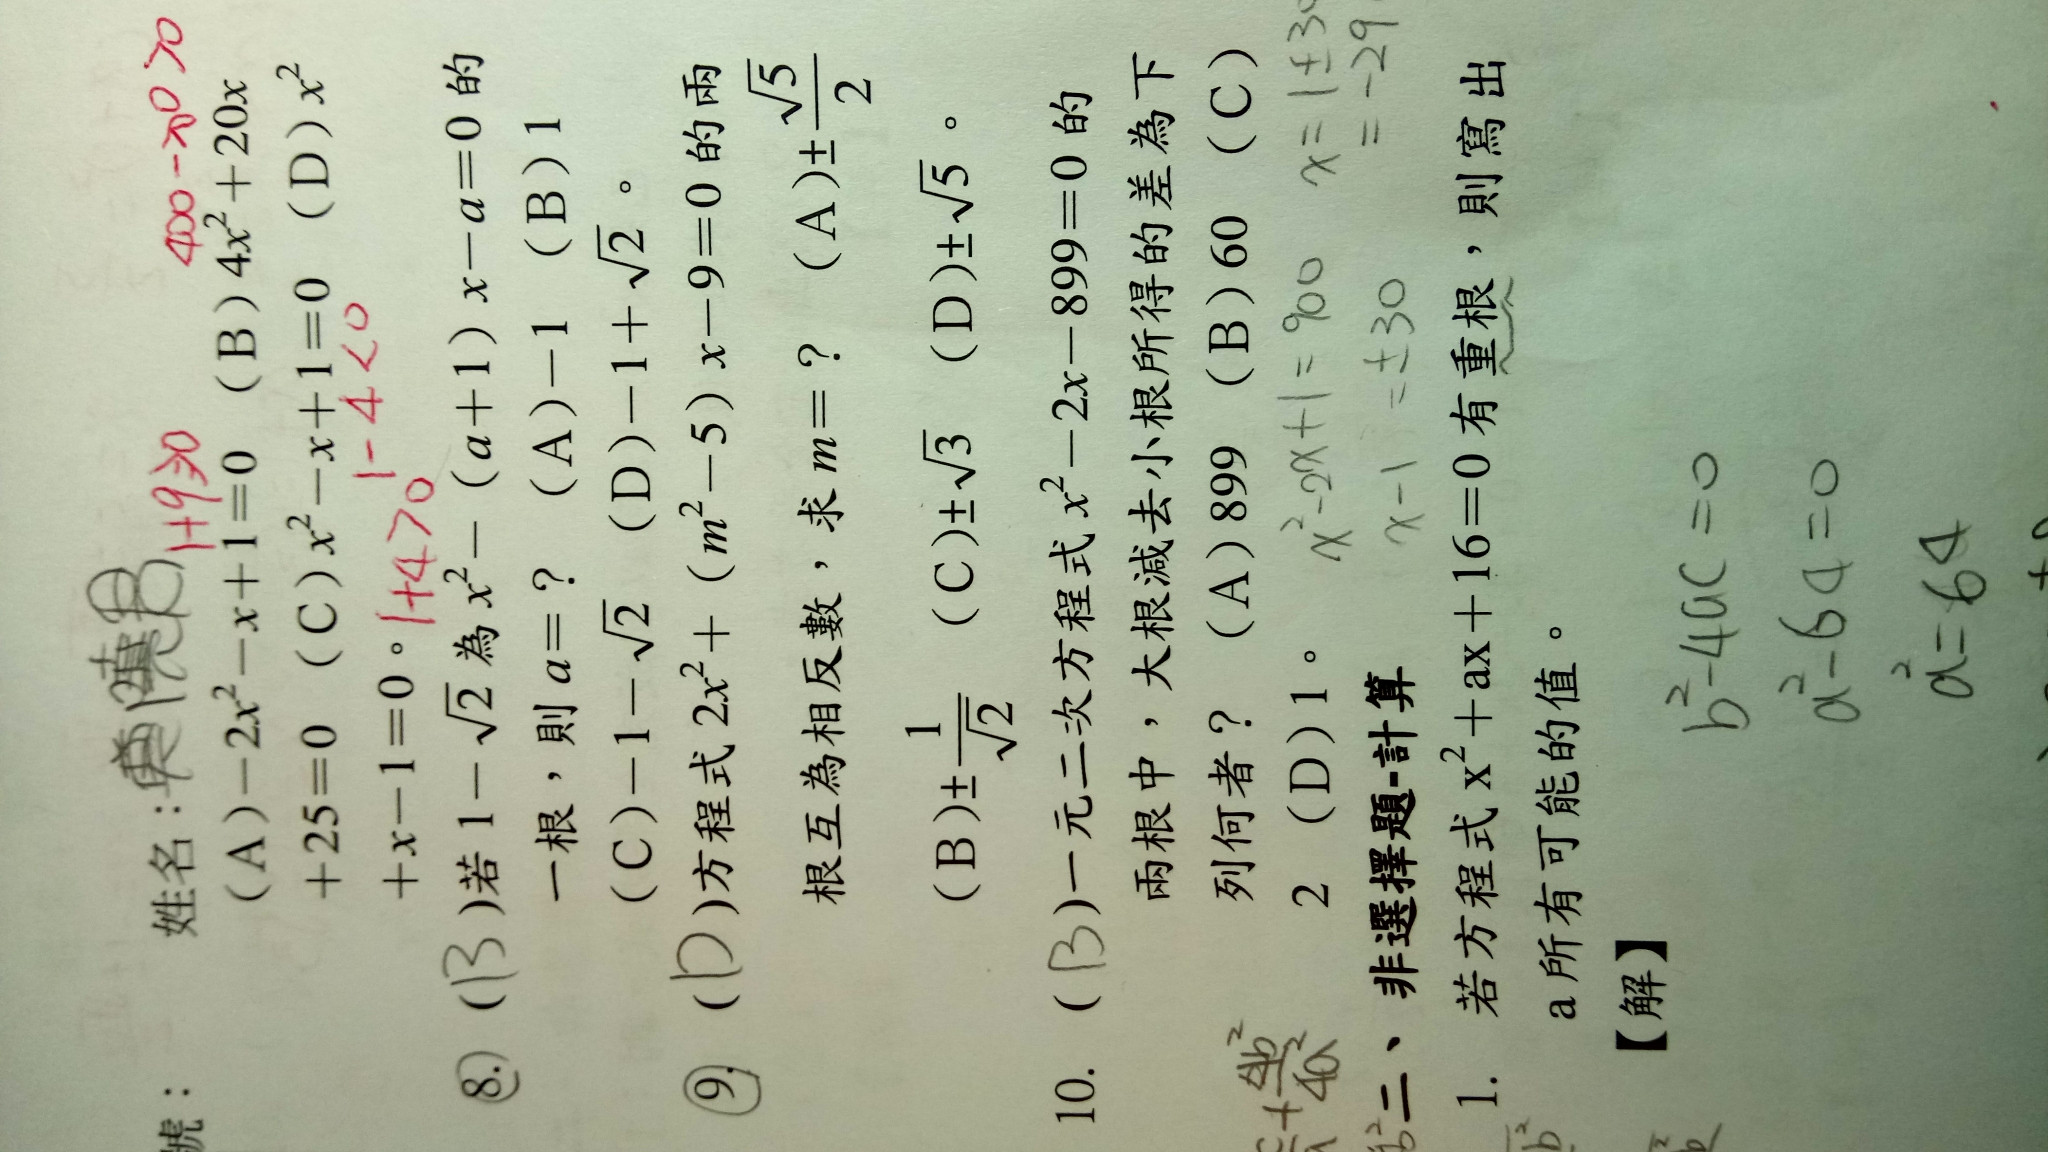 400-𠀀0>0
號： 姓名： 1+9≥0
(A)－2x²－x＋1＝0 (B)4x²＋20x
＋25＝0 (C)x²－x＋1＝0 (D)x²
1-4<0
＋x－1＝0。 1+4>0
8. (B)若1－√2為x²－(a＋1)x－a＝0的
一根，則a＝？ (A)－1 (B)1
(C)－1－√2 (D)－1＋√2。
9. (D)方程式2x²＋(m²－5)x－9＝0的兩
根互為相反數，求m＝？ (A)±√5/2
(B)±1/√2 (C)±√3 (D)±√5。
10. (B)一元二次方程式x²－2x－899＝0的
兩根中，大根減去小根所得的差為下
列何者？ (A)899 (B)60 (C)
2 (D)1。 x²-2x+1=900 x=1±3
x-1=±30 =-29
二、非選擇題-計算
1. 若方程式x²＋ax＋16＝0有重根，則寫出
a所有可能的值。
【解】
b²-4ac=0
a²-64=0
a²=64